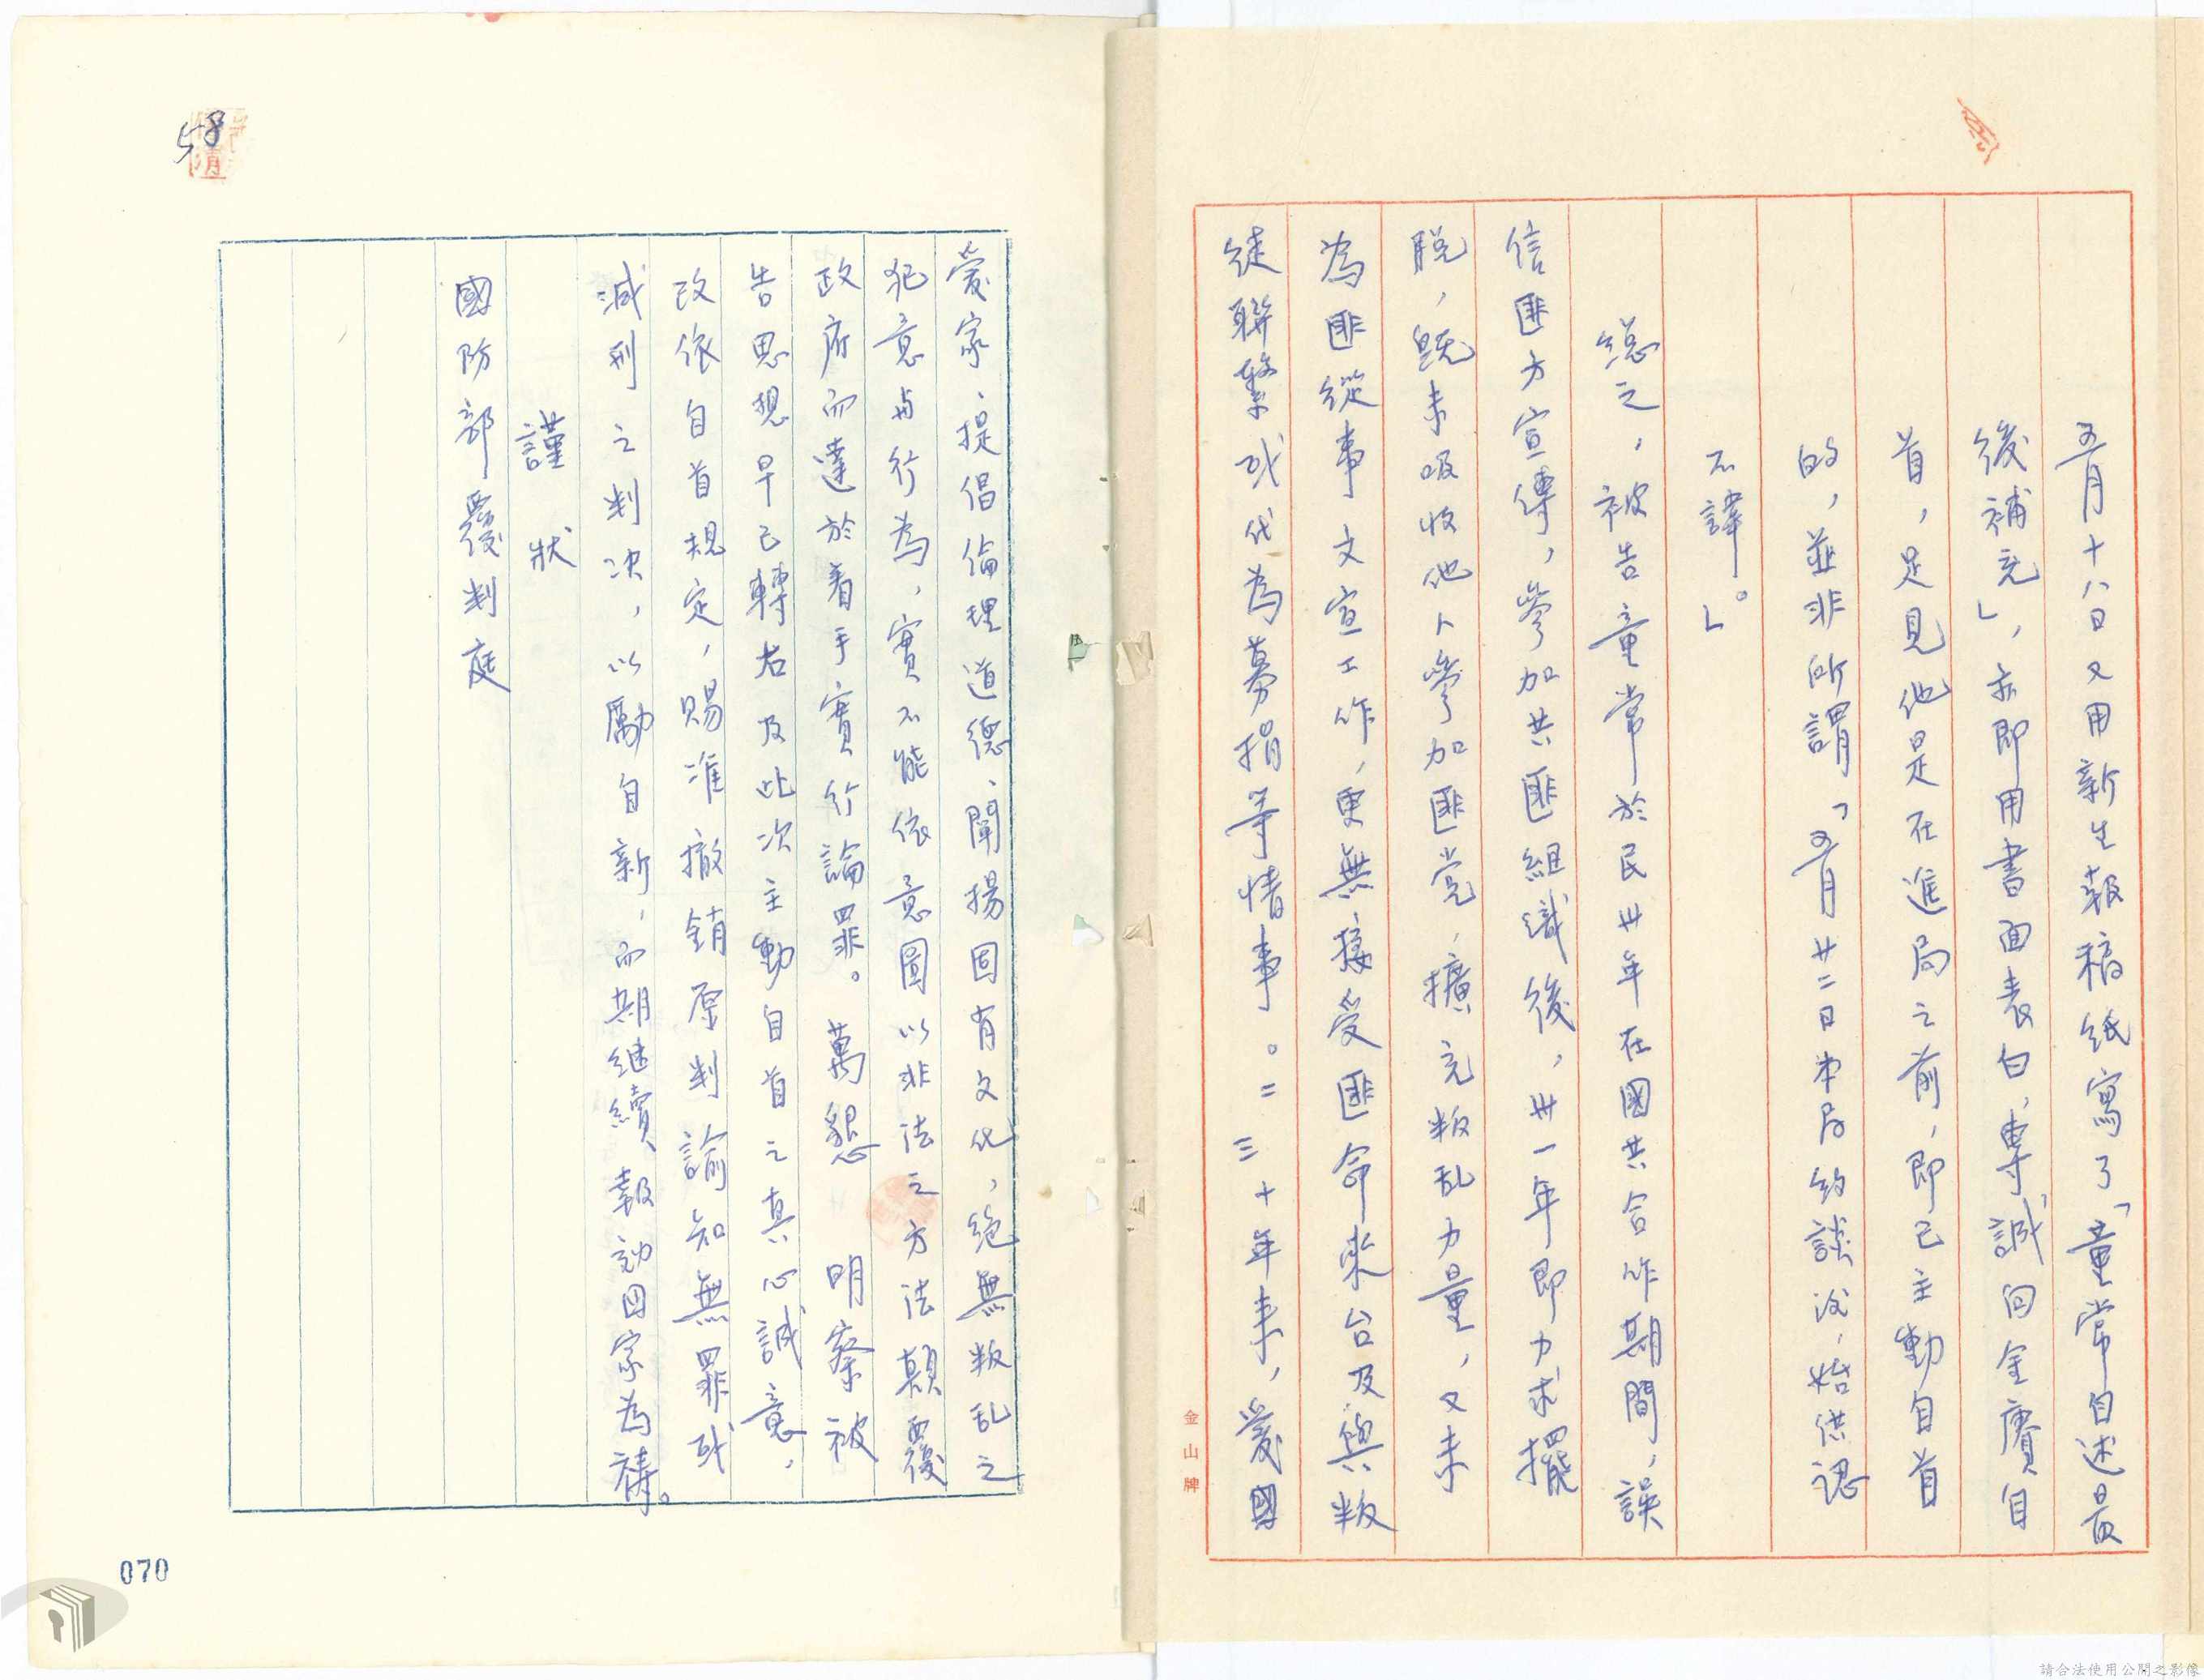 五月十八日又用新生報稿紙寫了「童常自述最
後補充」,亦即用書面表白,專誠向金賡自
首,足見他是在進局之前,即已主動自首
的,並非所謂「五月廿二日本局約談後,始供認
不諱。」
總之,被告童常於民卅年在國共合作期間,誤
信匪方宣傳,參加共匪組織後,卅一年即力求擺
脫,既未吸收他人參加匪党,擴充叛乱力量,又未
為匪從事文宣工作,更無接受匪命來台及與叛
徒聯繫或代為募捐等情事。二三十年來,愛國
愛家、提倡倫理道德、闡揚固有文化,絕無叛乱之
犯意與行為,實不能依意圖以非法之方法顛覆
政府而達於着手實行論罪。萬懇 明察被
告思想早已轉右及此次主動自首之真心誠意,
改依自首規定,賜准撤銷原判諭知無罪或
減刑之判决,以勵自新,而期继續報効国家為禱。
謹狀
國防部覆判庭
58
070
金山牌
請合法使用公開之影像